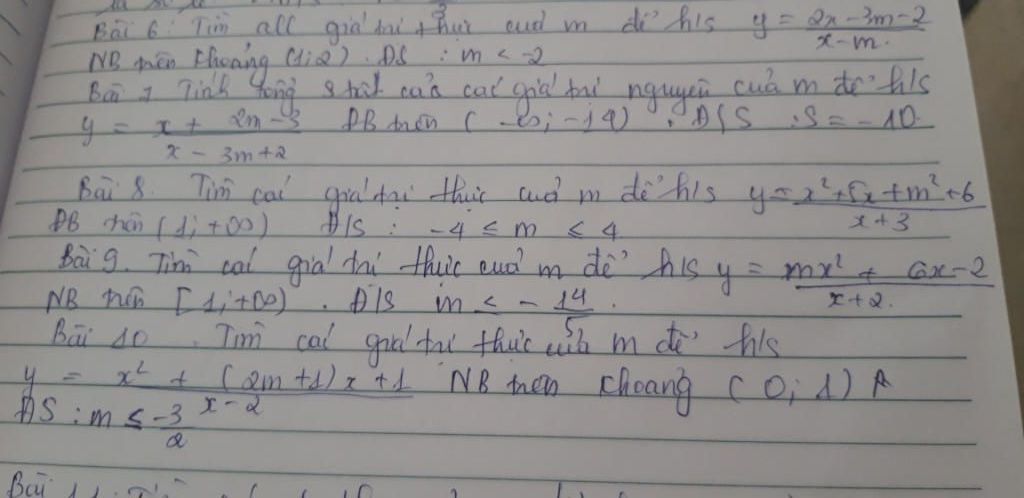 Bài 6: Tìm all giá trị thực của m để h/s y = 2x - 3m - 2 / x - m.
NB trên khoảng (1; 2). ĐS : m < -2
Bài 7 Tính tổng S tất cả các giá trị nguyên của m để h/s
y = x + 2m - 3 / x - 3m + 2 ĐB trên (-∞; -14). Đ/S : S = -10.
Bài 8. Tìm các giá trị thực của m để h/s y = x² + 5x + m² + 6 / x + 3
ĐB trên (1; +∞) Đ/S : -4 ≤ m ≤ 4
Bài 9. Tìm các giá trị thực của m để h/s y = mx² + 6x - 2 / x + 2.
NB trên [1; +∞). Đ/S m ≤ - 14 / 5.
Bài 10. Tìm các giá trị thực của m để h/s
y = x² + (2m + 1)x + 1 / x - 2 NB trên khoảng (0; 1)
ĐS : m ≤ -3 / 2